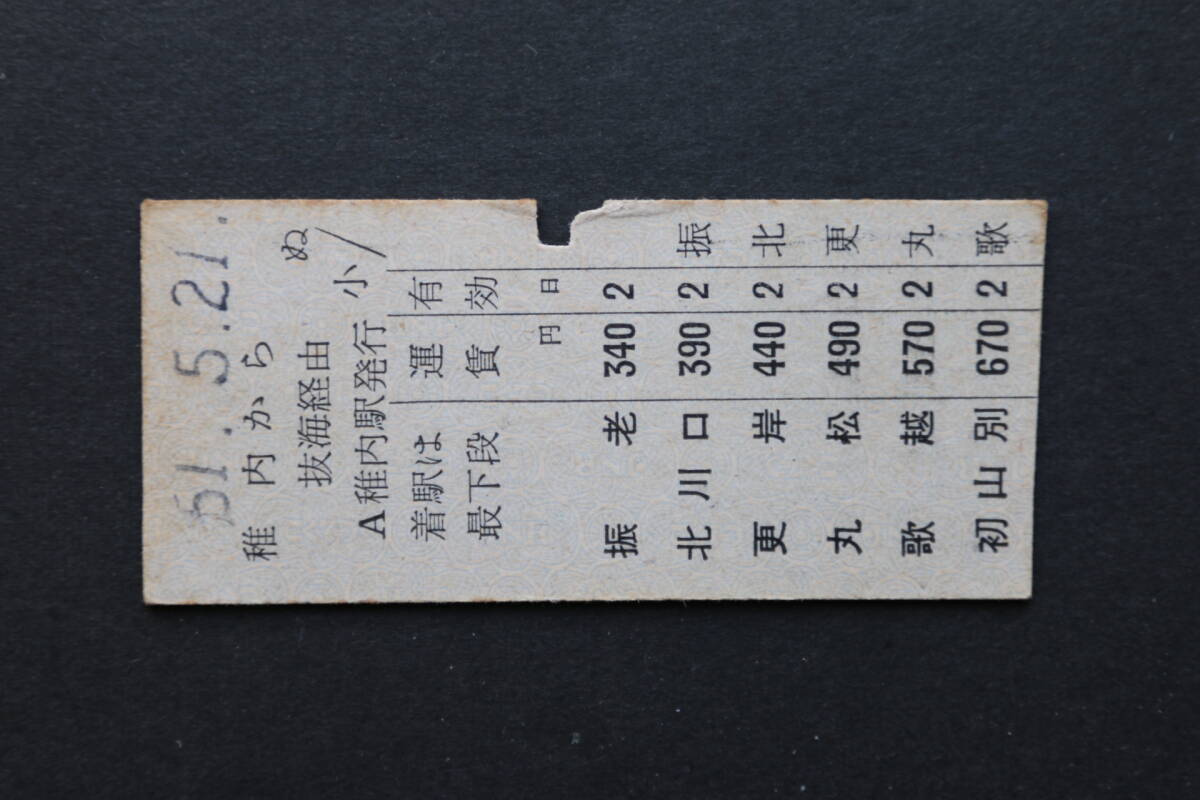 51.5.21.
稚内から
抜海経由 ぬ
A稚内駅発行 小
着駅は 運 有
最下段 賃 効
円 日
振老 340 2
北川口 390 2 振
更岸 440 2 北
丸松 490 2 更
歌越 570 2 丸
初山別 670 2 歌